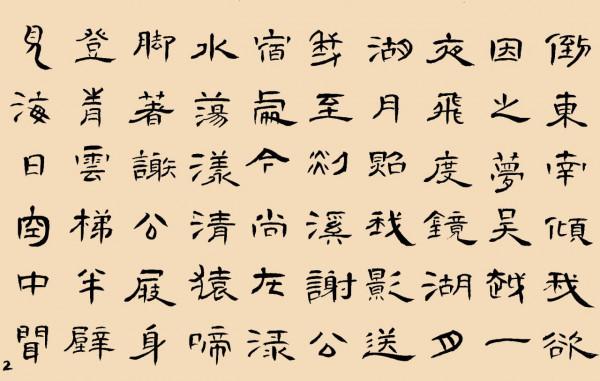 倒東南傾我欲
因之夢吴越一
夜飛度鏡湖月
湖月照我影送
我至剡溪謝公
宿處今尚在渌
水蕩漾清猿啼
脚著謝公屐身
登青雲梯半壁
見海日空中聞
2